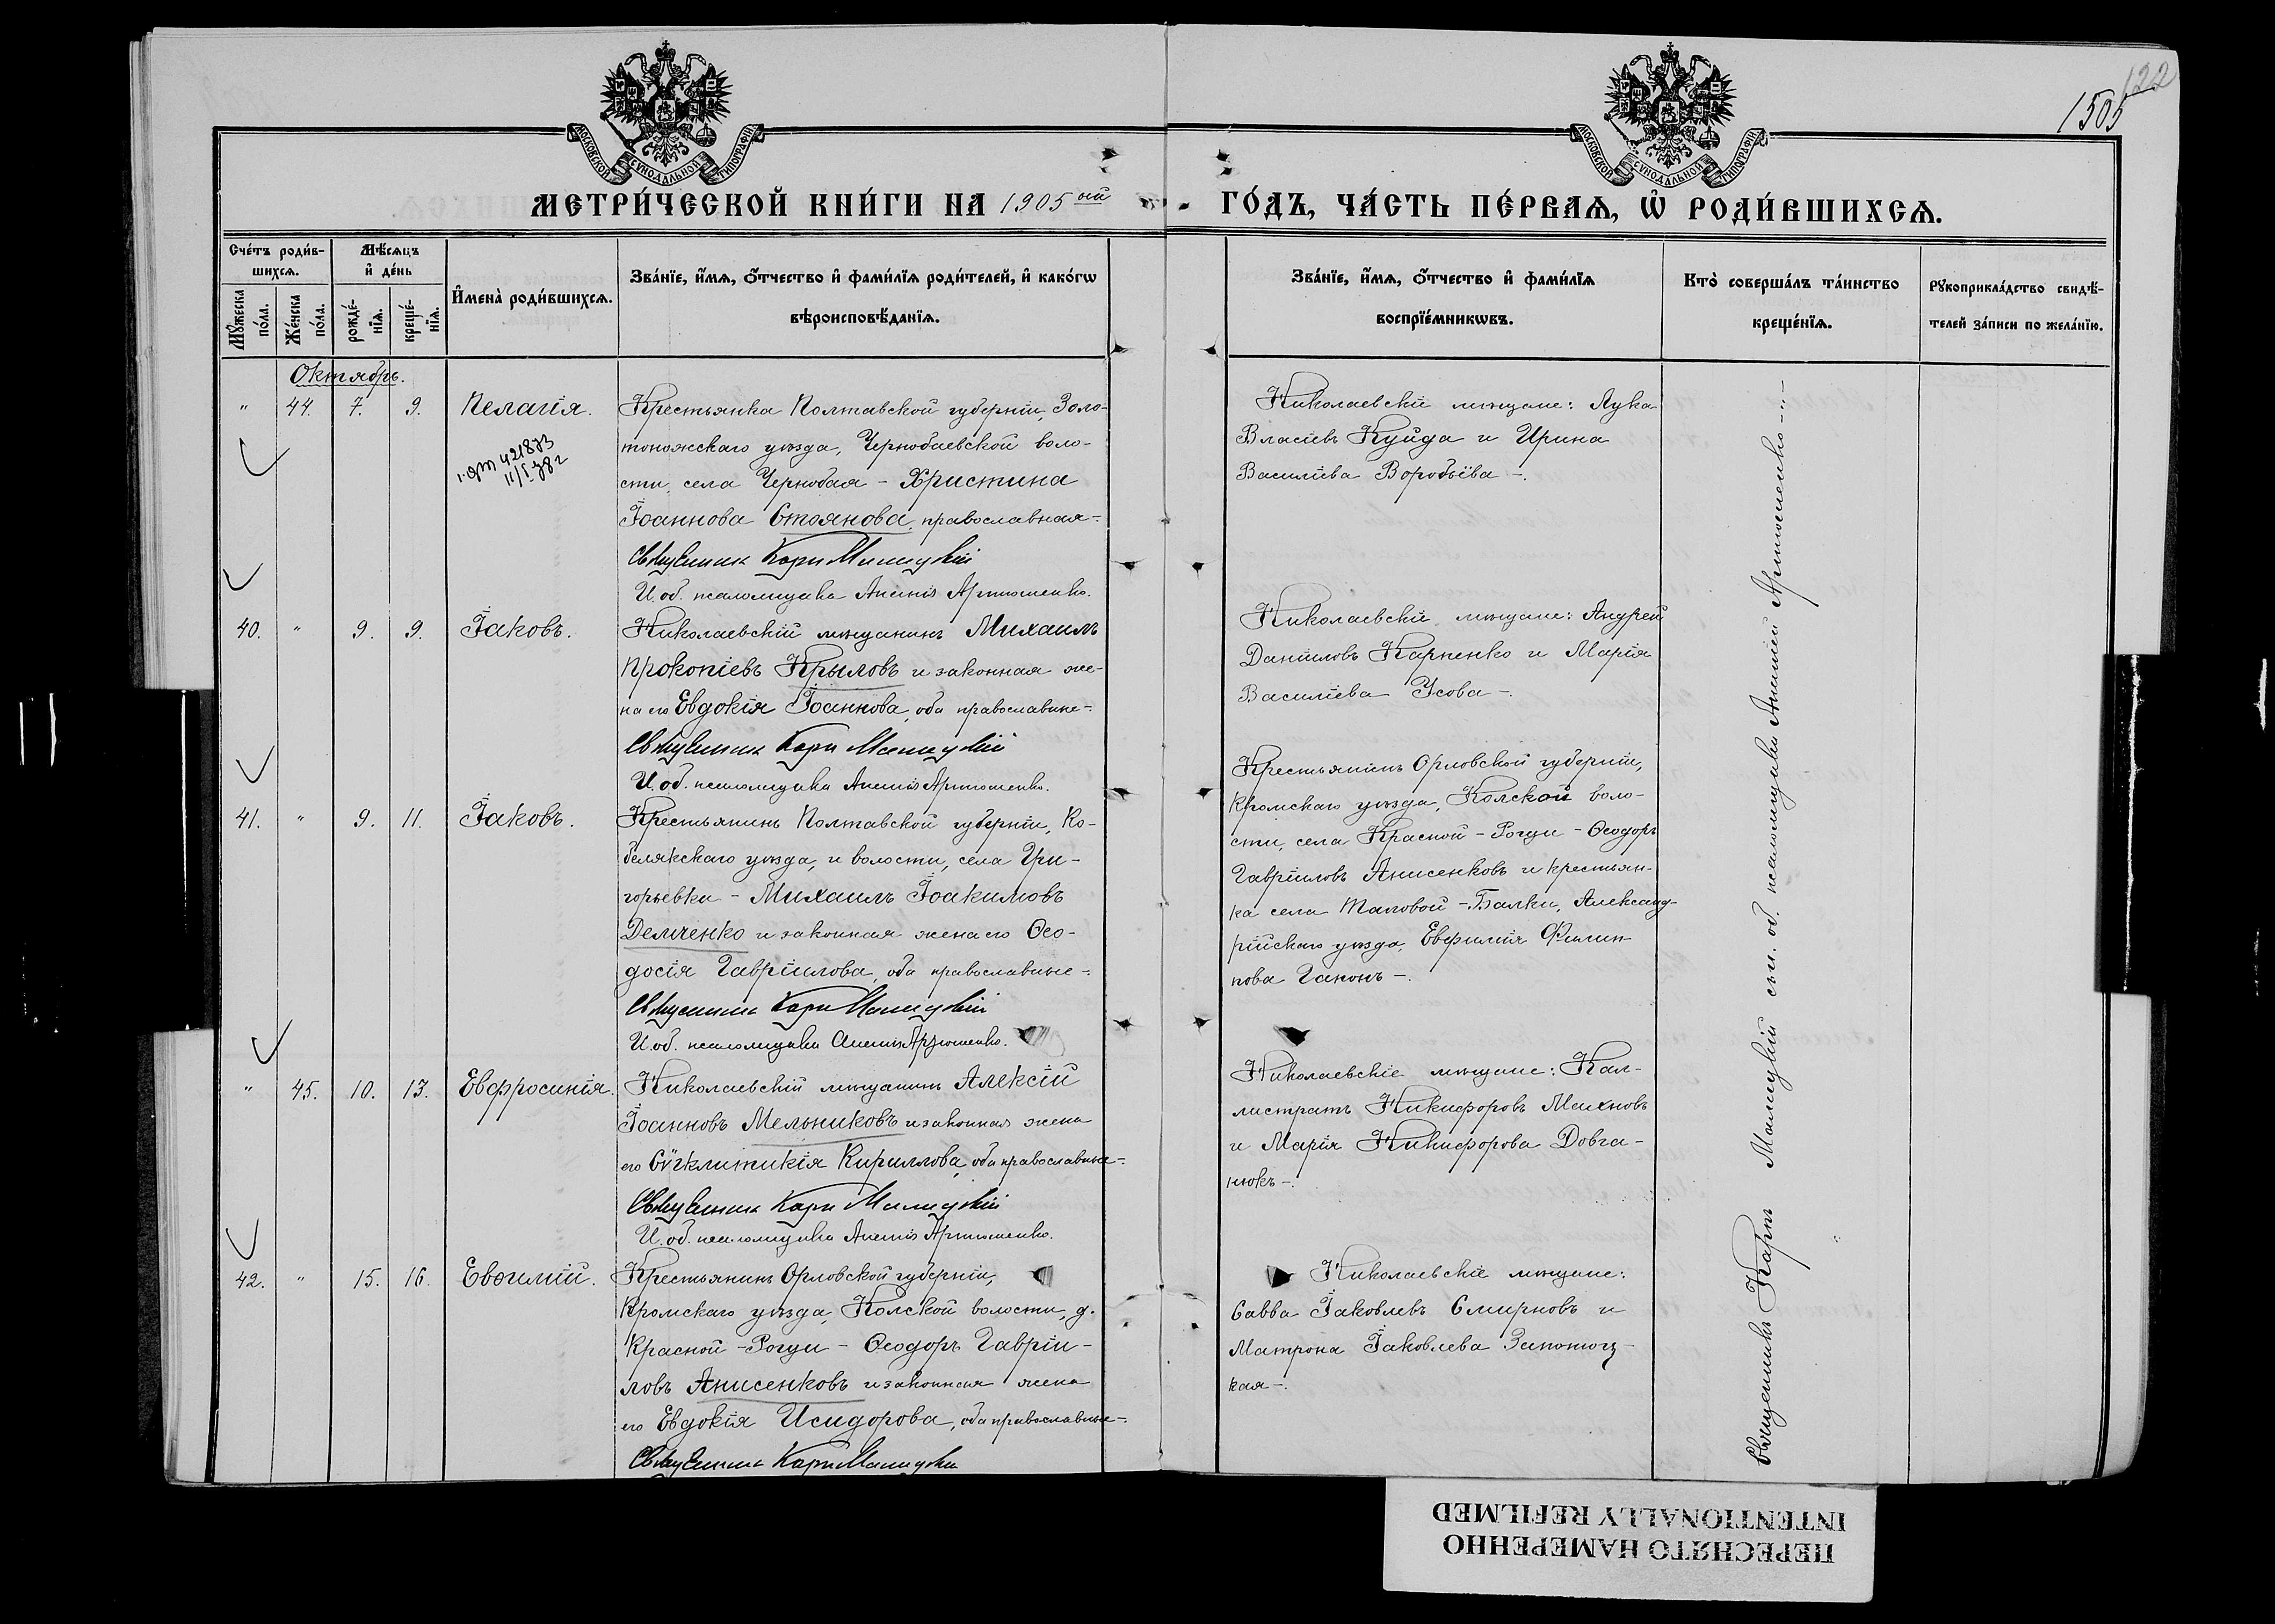 122
1505
МОСКОВСКОЙ СѴНОДАЛЬНОЙ ТИПОГРАФІИ
МОСКОВСКОЙ СѴНОДАЛЬНОЙ ТИПОГРАФІИ
МЕТРИ́ЧЕСКОЙ КНИ́ГИ НА 1905 ой
ГО́ДЪ, ЧА́СТЬ ПЕ́РВАѦ, Ѡ҆ РОДИ́ВШИХСѦ.
Сче́тъ роди́в-
шихсѧ.
Мꙋ́жеска по́ла.
Же́нска по́ла.
Мѣ́сѧцъ
и҆ де́нь
рожде́-
нїѧ.
креще́-
нїѧ.
И҆мена̀ роди́вшихсѧ.
Зва́нїе, и҆́мѧ, ѻ҆́тчество и҆ фами́лїѧ роди́телей, и҆ како́гѡ
вѣроисповѣ́данїѧ.
Зва́нїе, и҆́мѧ, ѻ҆́тчество и҆ фами́лїѧ
воспрїе́мникѡвъ.
Кто̀ соверша́лъ та́инство
креще́нїѧ.
Рꙋкоприкла́дство свидѣ́-
телей за́писи по жела́нїю.
Октябрь.
" 44. 7. 9. Пелагія.
Крестьянка Полтавской губерніи, Золо-
тоножскаго уѣзда, Чернобаевской воло-
сти, села Чернобая - Христина
Іоаннова Стоянова, православная-.
Священникъ Карпъ Малицкій
И. об. псаломщика Ананій Артюшенко.
Николаевскіе мѣщане: Лука
Власіевъ Куйда и Ирина
Василіева Воробьёва -.
40. " 9. 9. Іаковъ.
Николаевскій мѣщанинъ Михаилъ
Прокопіевъ Крыловъ и законная же-
на его Евдокія Іоаннова, оба православные-.
Священникъ Карпъ Малицкій
И. об. псаломщика Ананій Артюшенко.
Николаевскіе мѣщане: Андрей
Даніиловъ Карпенко и Марія
Василіева Усова -.
41. " 9. 11. Іаковъ.
Крестьянинъ Полтавской губерніи, Ко-
белякскаго уѣзда, и волости, села Гри-
горьевки - Михаилъ Іоакимовъ
Демченко и законная жена его Ѳео-
досія Гавріилова, оба православные-.
Священникъ Карпъ Малицкій
И. об. псаломщика Ананій Артюшенко.
Крестьянинъ Орловской губерніи,
Кромскаго уѣзда, Колской воло-
сти, села Красной - Рощи - Ѳеодоръ
Гавріиловъ Анисенковъ и крестьян-
ка села Маловой - Балки, Александ-
рійскаго уѣзда, Евфимія Филип-
пова Гапонъ -.
" 45. 10. 13. Евфросинія.
Николаевскій мѣщанинъ Алексій
Іоанновъ Мельниковъ и законная жена
его Сѵгклитикія Кириллова, оба православные-.
Священникъ Карпъ Малицкій
И. об. псаломщика Ананій Артюшенко.
Николаевскіе мѣщане: Кал-
листратъ Никифоровъ Махновъ
и Марія Никифорова Довга-
нюкъ -.
42. " 15. 16. Евѳимій.
Крестьянинъ Орловской губерніи,
Кромскаго уѣзда, Колской волости, д.
Красной - Рощи - Ѳеодоръ Гавріи-
ловъ Анисенковъ и законная жена
его Евдокія Исидорова, оба православные-.
Священникъ Карпъ Малицкій
Николаевскіе мѣщане:
Савва Іаковлевъ Смирновъ и
Матрона Іаковлева
кая -.
Священникъ Карпъ Малицкій съ и. об. псаломщика Ананіемъ Артюшенко -
ПЕРЕСНЯТО НАМЕРЕННО
INTENTIONALLY REFILMED